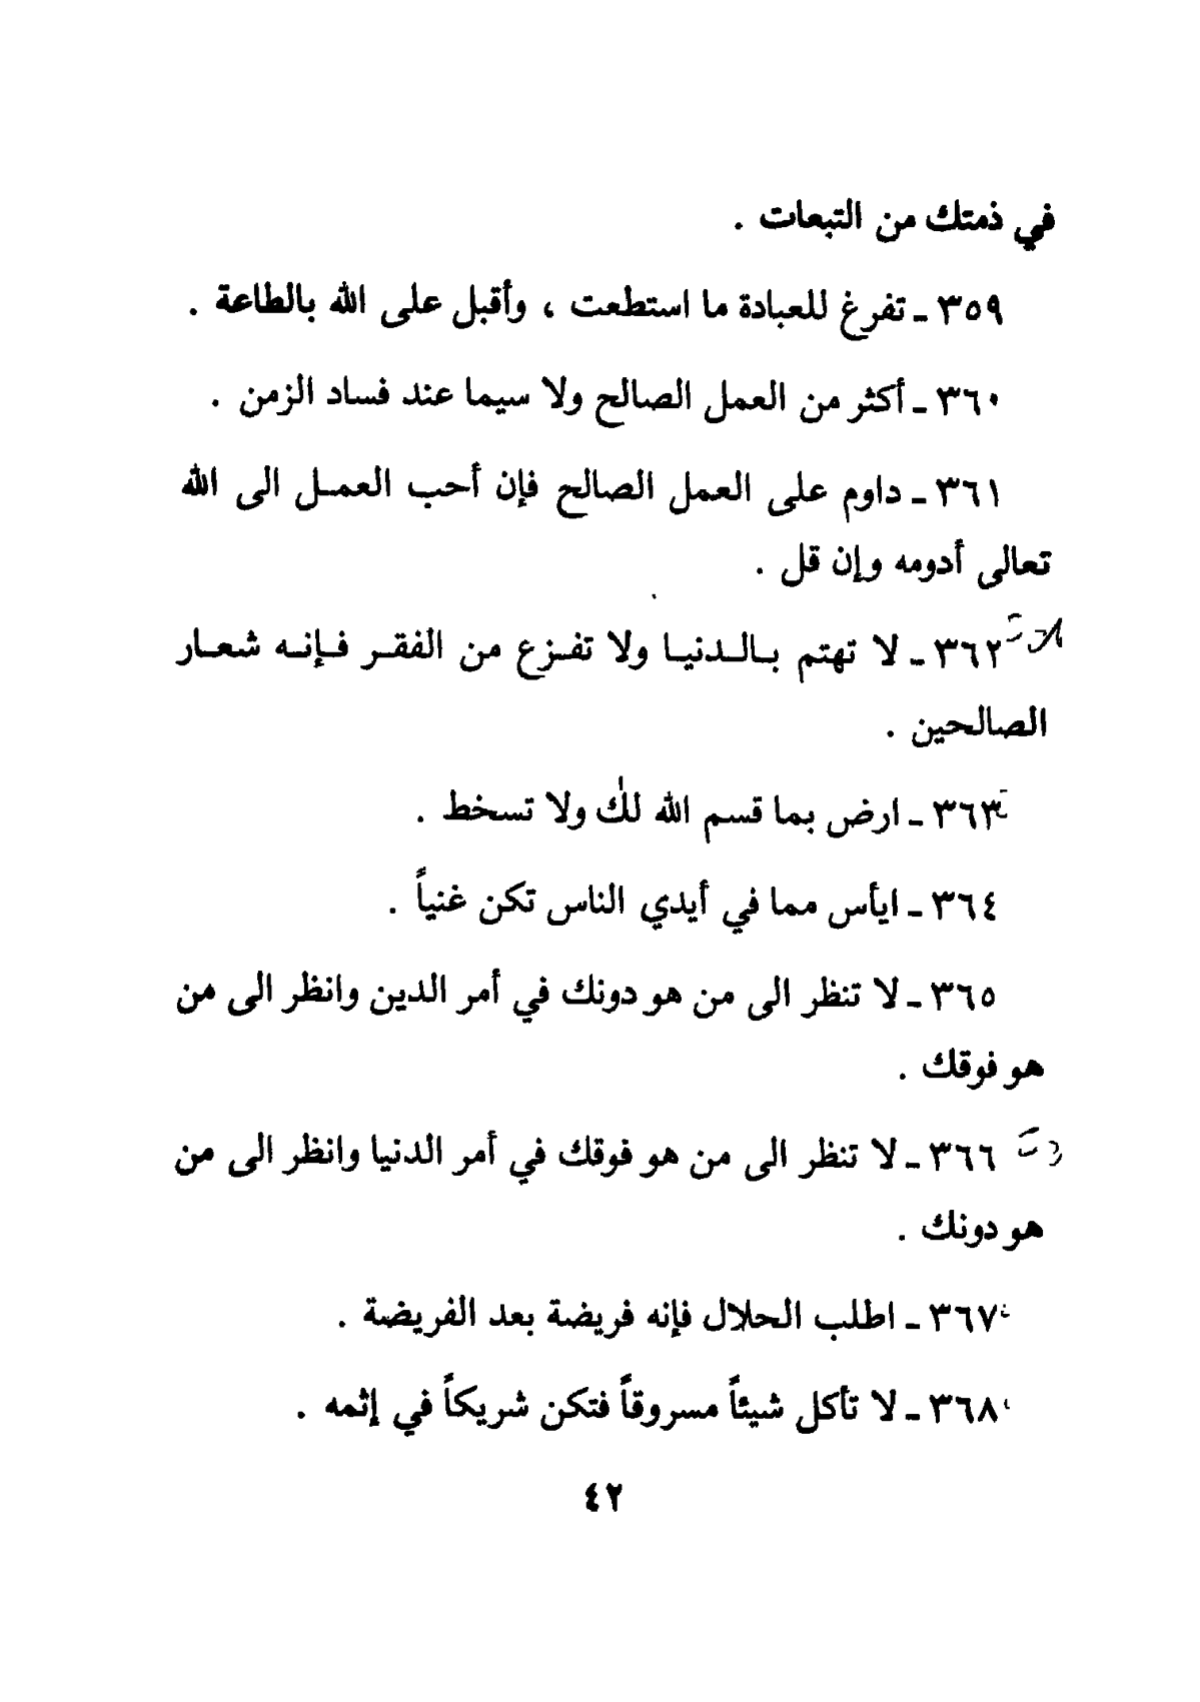 في ذمتك من التبعات .
٣٥٩ ـ تفرغ للعبادة ما استطعت ، وأقبل على الله بالطاعة .
٣٦٠ ـ أكثر من العمل الصالح ولا سيما عند فساد الزمن .
٣٦١ ـ داوم على العمل الصالح فإن أحب العمـل الى الله
تعالى أدومه وإن قل .
٣٦٢ ـ لا تهتم بـالـدنيـا ولا تفـزع من الفقـر فـإنـه شعـار
الصالحين .
٣٦٣ ـ ارض بما قسم الله لك ولا تسخط .
٣٦٤ ـ ايأس مما في أيدي الناس تكن غنياً .
٣٦٥ ـ لا تنظر الى من هو دونك في أمر الدين وانظر الى من
هو فوقك .
٣٦٦ ـ لا تنظر الى من هو فوقك في أمر الدنيا وانظر الى من
هو دونك .
٣٦٧ ـ اطلب الحلال فإنه فريضة بعد الفريضة .
٣٦٨ ـ لا تأكل شيئاً مسروقاً فتكن شريكاً في إثمه .
٤٢